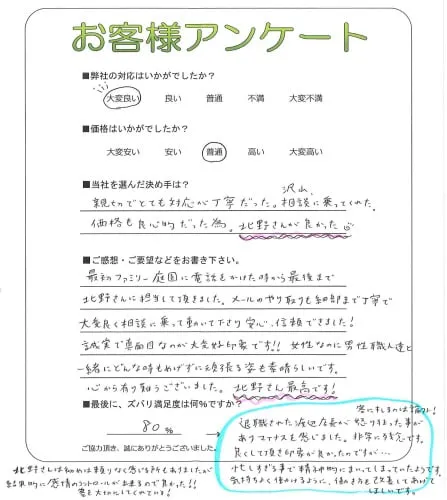 お客様アンケート
■弊社の対応はいかがでしたか？
大変良い 良い 普通 不満 大変不満
■価格はいかがでしたか？
大変安い 安い 普通 高い 大変高い
■当社を選んだ決め手は？
沢山、
親切でとても対応が丁寧だった。相談に乗ってくれた。
価格も良心的だった為。北野さんが良かった
■ご感想・ご要望などをお書き下さい。
最初ファミリー庭園に電話をかけた時から最後まで
北野さんに担当して頂きました。メールのやり取りも細部まで丁寧で
大変良く相談に乗って動いて下さり安心、信頼できました！
誠実で真面目なのが大変好印象です!! 女性なのに男性職人達と
一緒にどんな時もめげずに頑張る姿も素晴らしいです。
心から有り難うございました。北野さん最高です！
■最後に、ズバリ満足度は何％ですか？
80％
ご協力頂き、誠にありがとうございました。
北野さんは初めは頼りなく感じる所もありましたが
結果的に感情のコントロールが出来るので良かった!!
客を大切にしてくれている！
客に当るのは論外！
退職された渡辺店長が怒り
事が
ありマイナスを感じました。非常に残念です。
良くして頂き印象が良かったのですが…
忙しすぎる事で精神的にまいってしまっていたようです。
気持ちよく働けるように、働き方を改善してあげて
ほしいです。